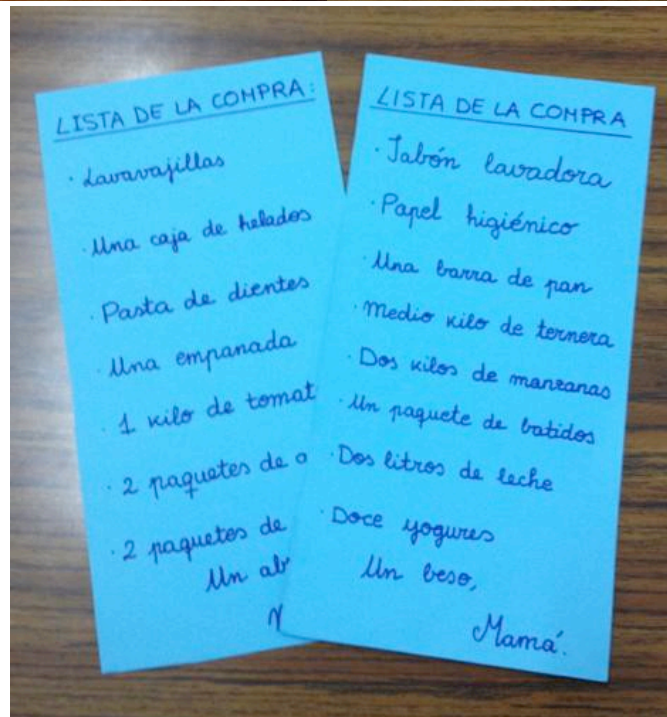 LISTA DE LA COMPRA:
· Lavavajillas
· Una caja de helados
· Pasta de dientes
· Una empanada
· 1 kilo de
· 2 paquetes de
· 2 paquetes de
Un
LISTA DE LA COMPRA
· Jabón lavadora
· Papel higiénico
· Una barra de pan
· Medio kilo de ternera
· Dos kilos de manzanas
· Un paquete de batidos
· Dos litros de leche
· Doce yogures
Un beso,
Mamá.